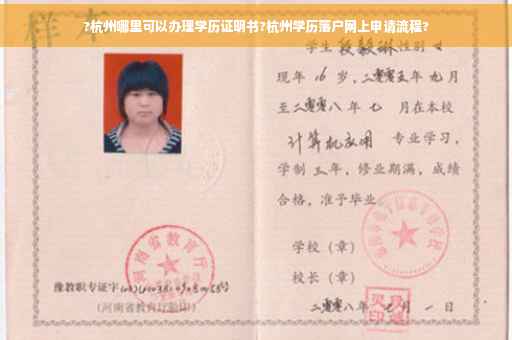 ?杭州哪里可以办理学历证明书?杭州学历落户网上申请流程?
样本
学生 段毅琳 性别 女
现年 16 岁,二零零五年 九月
至二零零八年 七 月在本校
计算机应用 专业学习,
学制 三 年,修业期满,成绩
合格,准予毕业
学校(章)
校长(章)
河南省教育厅
豫教职专证字
(河南省教育厅验印)
二零零八年 月 一 日